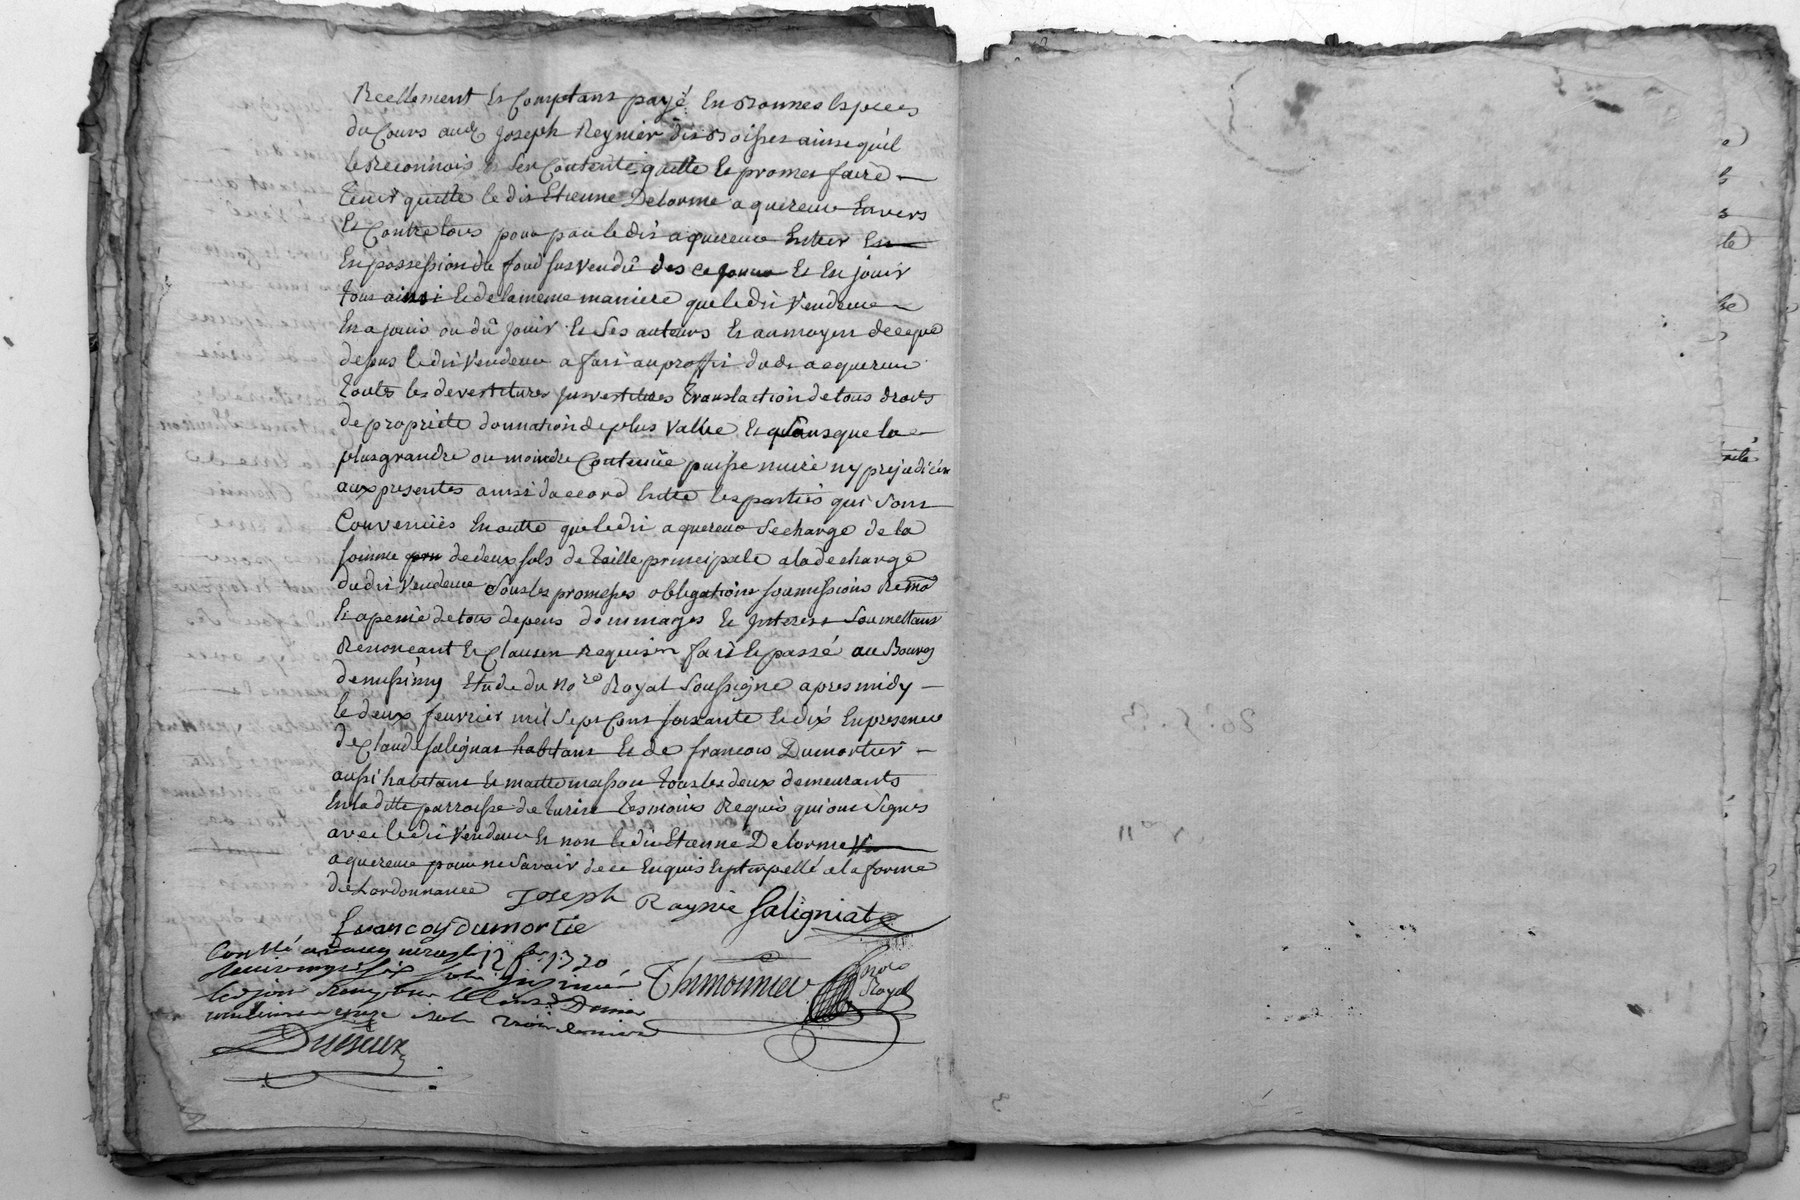 Reellement et Comptant payé En Bonnes Especes
du Cours aud Joseph Reynier dis Boisses ainse quil
le Reconnois et s'en Contente quitte et promet faire
tenir quitte le dit Etienne Delorme aquereur Envers
et Contre tous pour par le dit aquereur Entrer En
En possession du fond sus vendû des ce jour et En jouir
tout ainsi et de la meme maniere que le dit Vendeur
En a jouis ou dû jouir et Ses auteurs et au moyen de ce que
depus le dit Vendeur a fait au proffit du dt acquereur
toutes les devestitures Jnvestitures translaction de tous droits
de propriete donnation de plus Vallue et quoique la
plus grande ou moindre Contenüe puisse nuire ny prejudicier
aux presentes ainsi daccord Entre les parties qui sont
Convenües En outre que le dit aquereur Se charge de la
somme de deux sols de taille principale a la decharge
du dit Vendeur Sous les promesses obligations soumissions
Et a peine de tous depens dommages et Jnterest Soumettant
Renonceant et Clauses Requises fait et passé au Bourg
de messimy Etude du No.re Royal Soussigné apres midy
le deux feuvrier mil Sept Cent soixante et dix En presence
de Claude Salignat habitant et de francois Dumortier
aussi habitant et maitre masson tous les deux demeurants
En la ditte parroisse de turin temoins Requis qui ont Signes
avec le dit Vendeur et non le dit Etienne Delorme
aquereur pour ne Savoir de ce Enquis Enterpellé a la forme
de Lordonnance
Joseph Raynie Saligniat
francoy Dumortie
Con.llé a 12 f.er 1770
Thimonnier no.re Royal